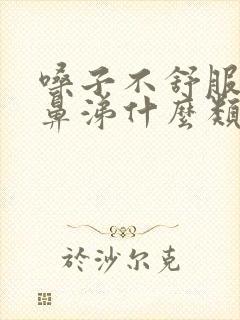 嗓子不舒服
鼻涕什麼類
於沙尔克